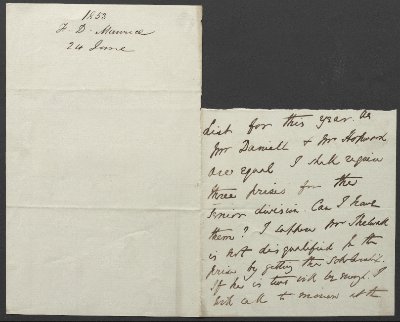 1852
F. D. Maurice
24 June
list for this year. As
Mr Daniell & Mr Howard
are equal I shall require
three prizes for the
Senior division. Can I have
them? I suppose Mr
is not disqualified for the
prize by getting the Scholarship.
If he is two will be enough. I
will call tomorrow at the